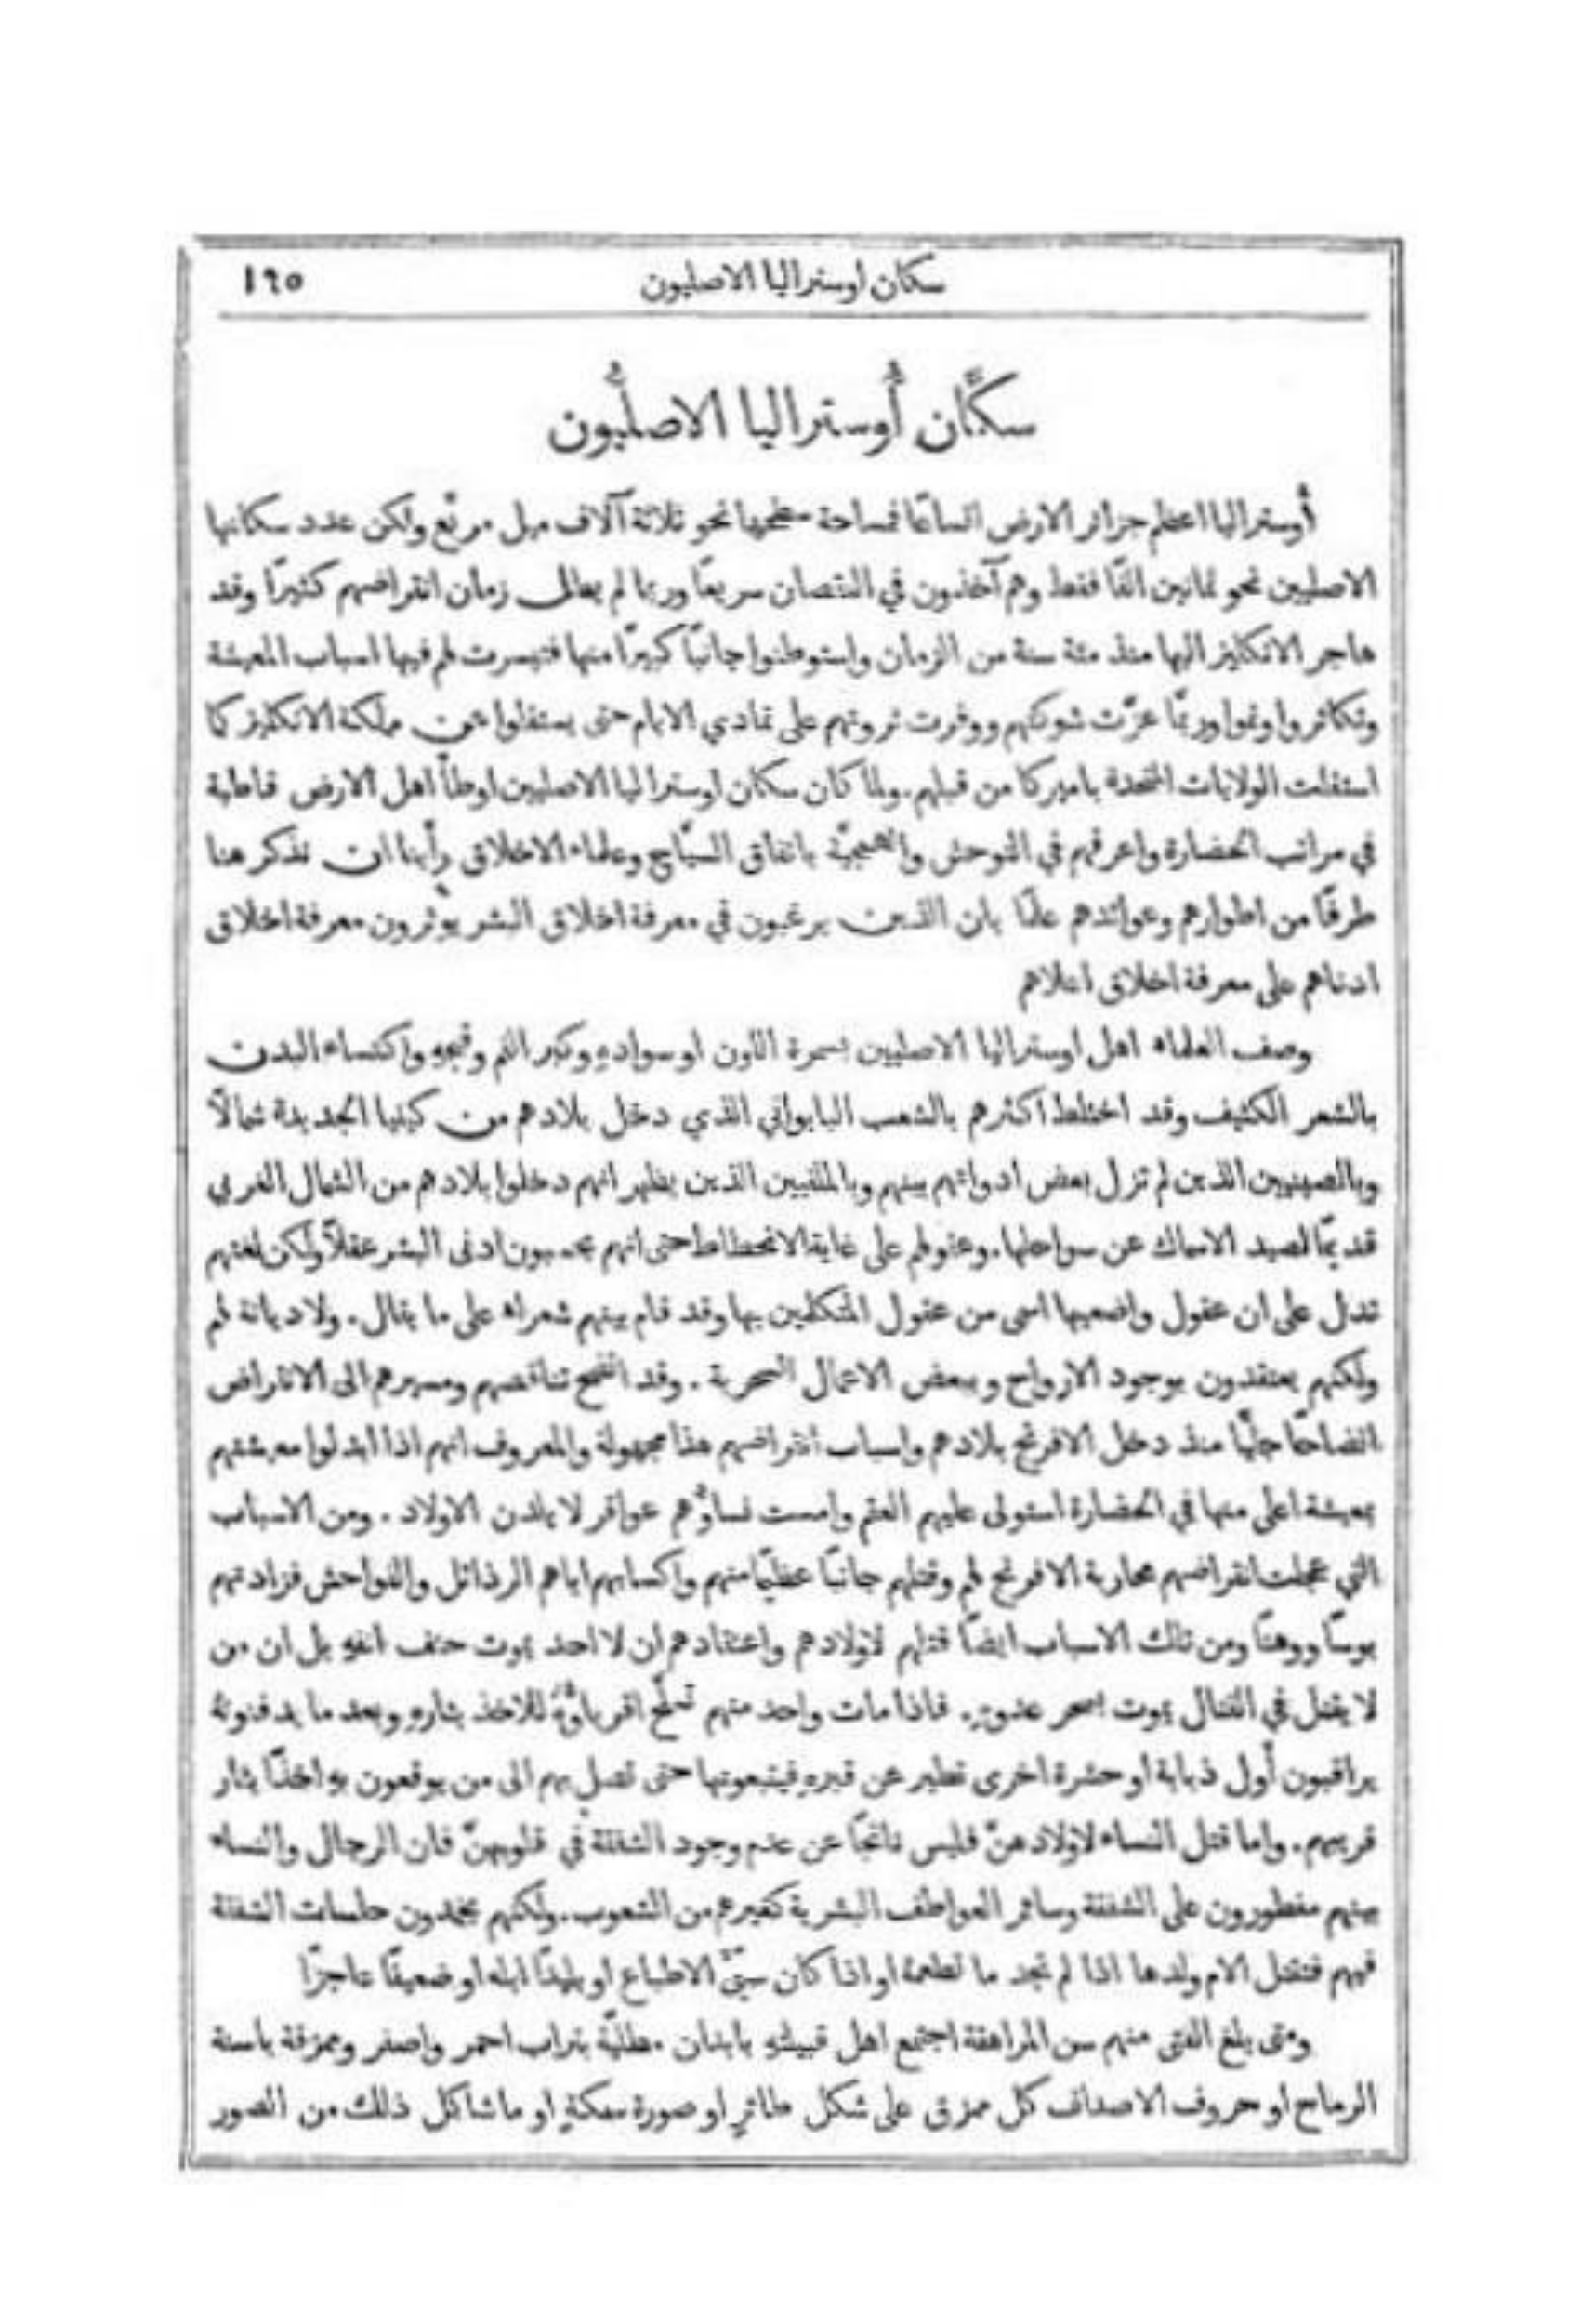 سكان اوستراليا الاصليون ١٩٥
سكَّان أُوستراليا الاصليُّون
أُوستراليا اعظم جزائر الارض اتساعًا فمساحة سطحها نحو ثلاثة آلاف ميل مربَّع ولكن عدد سكانها
الاصليين نحو ثمانين الفًا فقط وهم آخذون في النقصان سريعًا وربما لم يطل زمان انقراضهم كثيرًا وقد
هاجر الانكليز اليها منذ مئة سنة من الزمان واستوطنوا جانبًا كبيرًا منها فتيسرت لهم فيها اسباب المعيشة
وتكاثروا ونموا وربَّما عزَّت شوكتهم ووفرت ثروتهم على تمادي الايام حتى يستقلوا عن مملكة الانكليز كما
استقلت الولايات المتحدة باميركا من قبلهم. ولما كان سكان اوستراليا الاصليين اوطأ اهل الارض قاطبة
في مراتب الحضارة واعرقهم في التوحش والهمجيَّة باتفاق السيَّاح وعلماء الاخلاق رأَينا ان نذكر هنا
طرفًا من اطوارهم وعوائدهم علمًا بان الذين يرغبون في معرفة اخلاق البشر يؤثرون معرفة اخلاق
ادناهم على معرفة اخلاق اعلاهم
وصف العلماء اهل اوستراليا الاصليين بسمرة اللون او سواده وكبر الفم وقبحه واكتساء البدن
بالشعر الكثيف وقد اختلط اكثرهم بالشعب البابواني الذي دخل بلادهم من كينيا الجديدة شمالاً
وبالصينيين الذين لم تزل بعض ادواتهم بينهم وبالملقيين الذين يظهر انهم دخلوا بلادهم من الشمال الغربي
قديمًا لصيد الاسماك عن سواحلها. وعقولهم على غاية الانحطاط حتى انهم يحسبون ادنى البشر عقلاً ولكن لغتهم
تدل على ان عقول واضعيها اسمى من عقول المتكلمين بها وقد قام بينهم شعراء على ما يقال. ولا ديانة لهم
ولكنهم يعتقدون بوجود الارواح وببعض الاعمال السحرية. وقد اتضح تناقصهم ومسيرهم الى الانقراض
اتضاحًا جليًّا منذ دخل الافرنج بلادهم واسباب انقراضهم هذا مجهولة والمعروف انهم اذا ابدلوا معيشتهم
بمعيشة اعلى منها في الحضارة استولى عليهم العقم وامست نساؤُهم عواقر لا يلدن الاولاد. ومن الاسباب
التي عجلت انقراضهم محاربة الافرنج لهم وقتلهم جانبًا عظيمًا منهم واكسابهم اياهم الرذائل والفواحش فزادتهم
بوسًا ووهنًا ومن تلك الاسباب ايضًا قتلهم لاولادهم واعتقادهم ان لا احد يموت حتف انفه بل ان من
لا يقتل في القتال يموت بسحر عدوه. فاذا مات واحد منهم تسلَّح اقرباؤُهُ للاخذ بثاره وبعد ما يدفنونهُ
يراقبون أول ذبابة او حشرة اخرى تطير عن قبره فيتبعونها حتى تصل بهم الى من يوقعون به اخذًا بثار
قريبهم. واما قتل النساء لاولادهنَّ فليس ناتجًا عن عدم وجود الشفقة في قلوبهنَّ فان الرجال والنساء
بينهم مفطورون على الشفقة وسائر العواطف البشرية كغيرهم من الشعوب. ولكنهم يخمدون حاسات الشفقة
فيهم فتقتل الام ولدها اذا لم تجد ما تطعمهُ او اذا كان سيّئَ الاطباع او بليدًا ابله او ضعيفًا عاجزًا
ومتى بلغ الفتى منهم سن المراهقة اجتمع اهل قبيلته بابدان مطليَّة بتراب احمر واصفر وممزقة باسنة
الرماح او حروف الاصداف كل ممزق على شكل طائرٍ او صورة سمكةٍ او ما شاكل ذلك من الصور